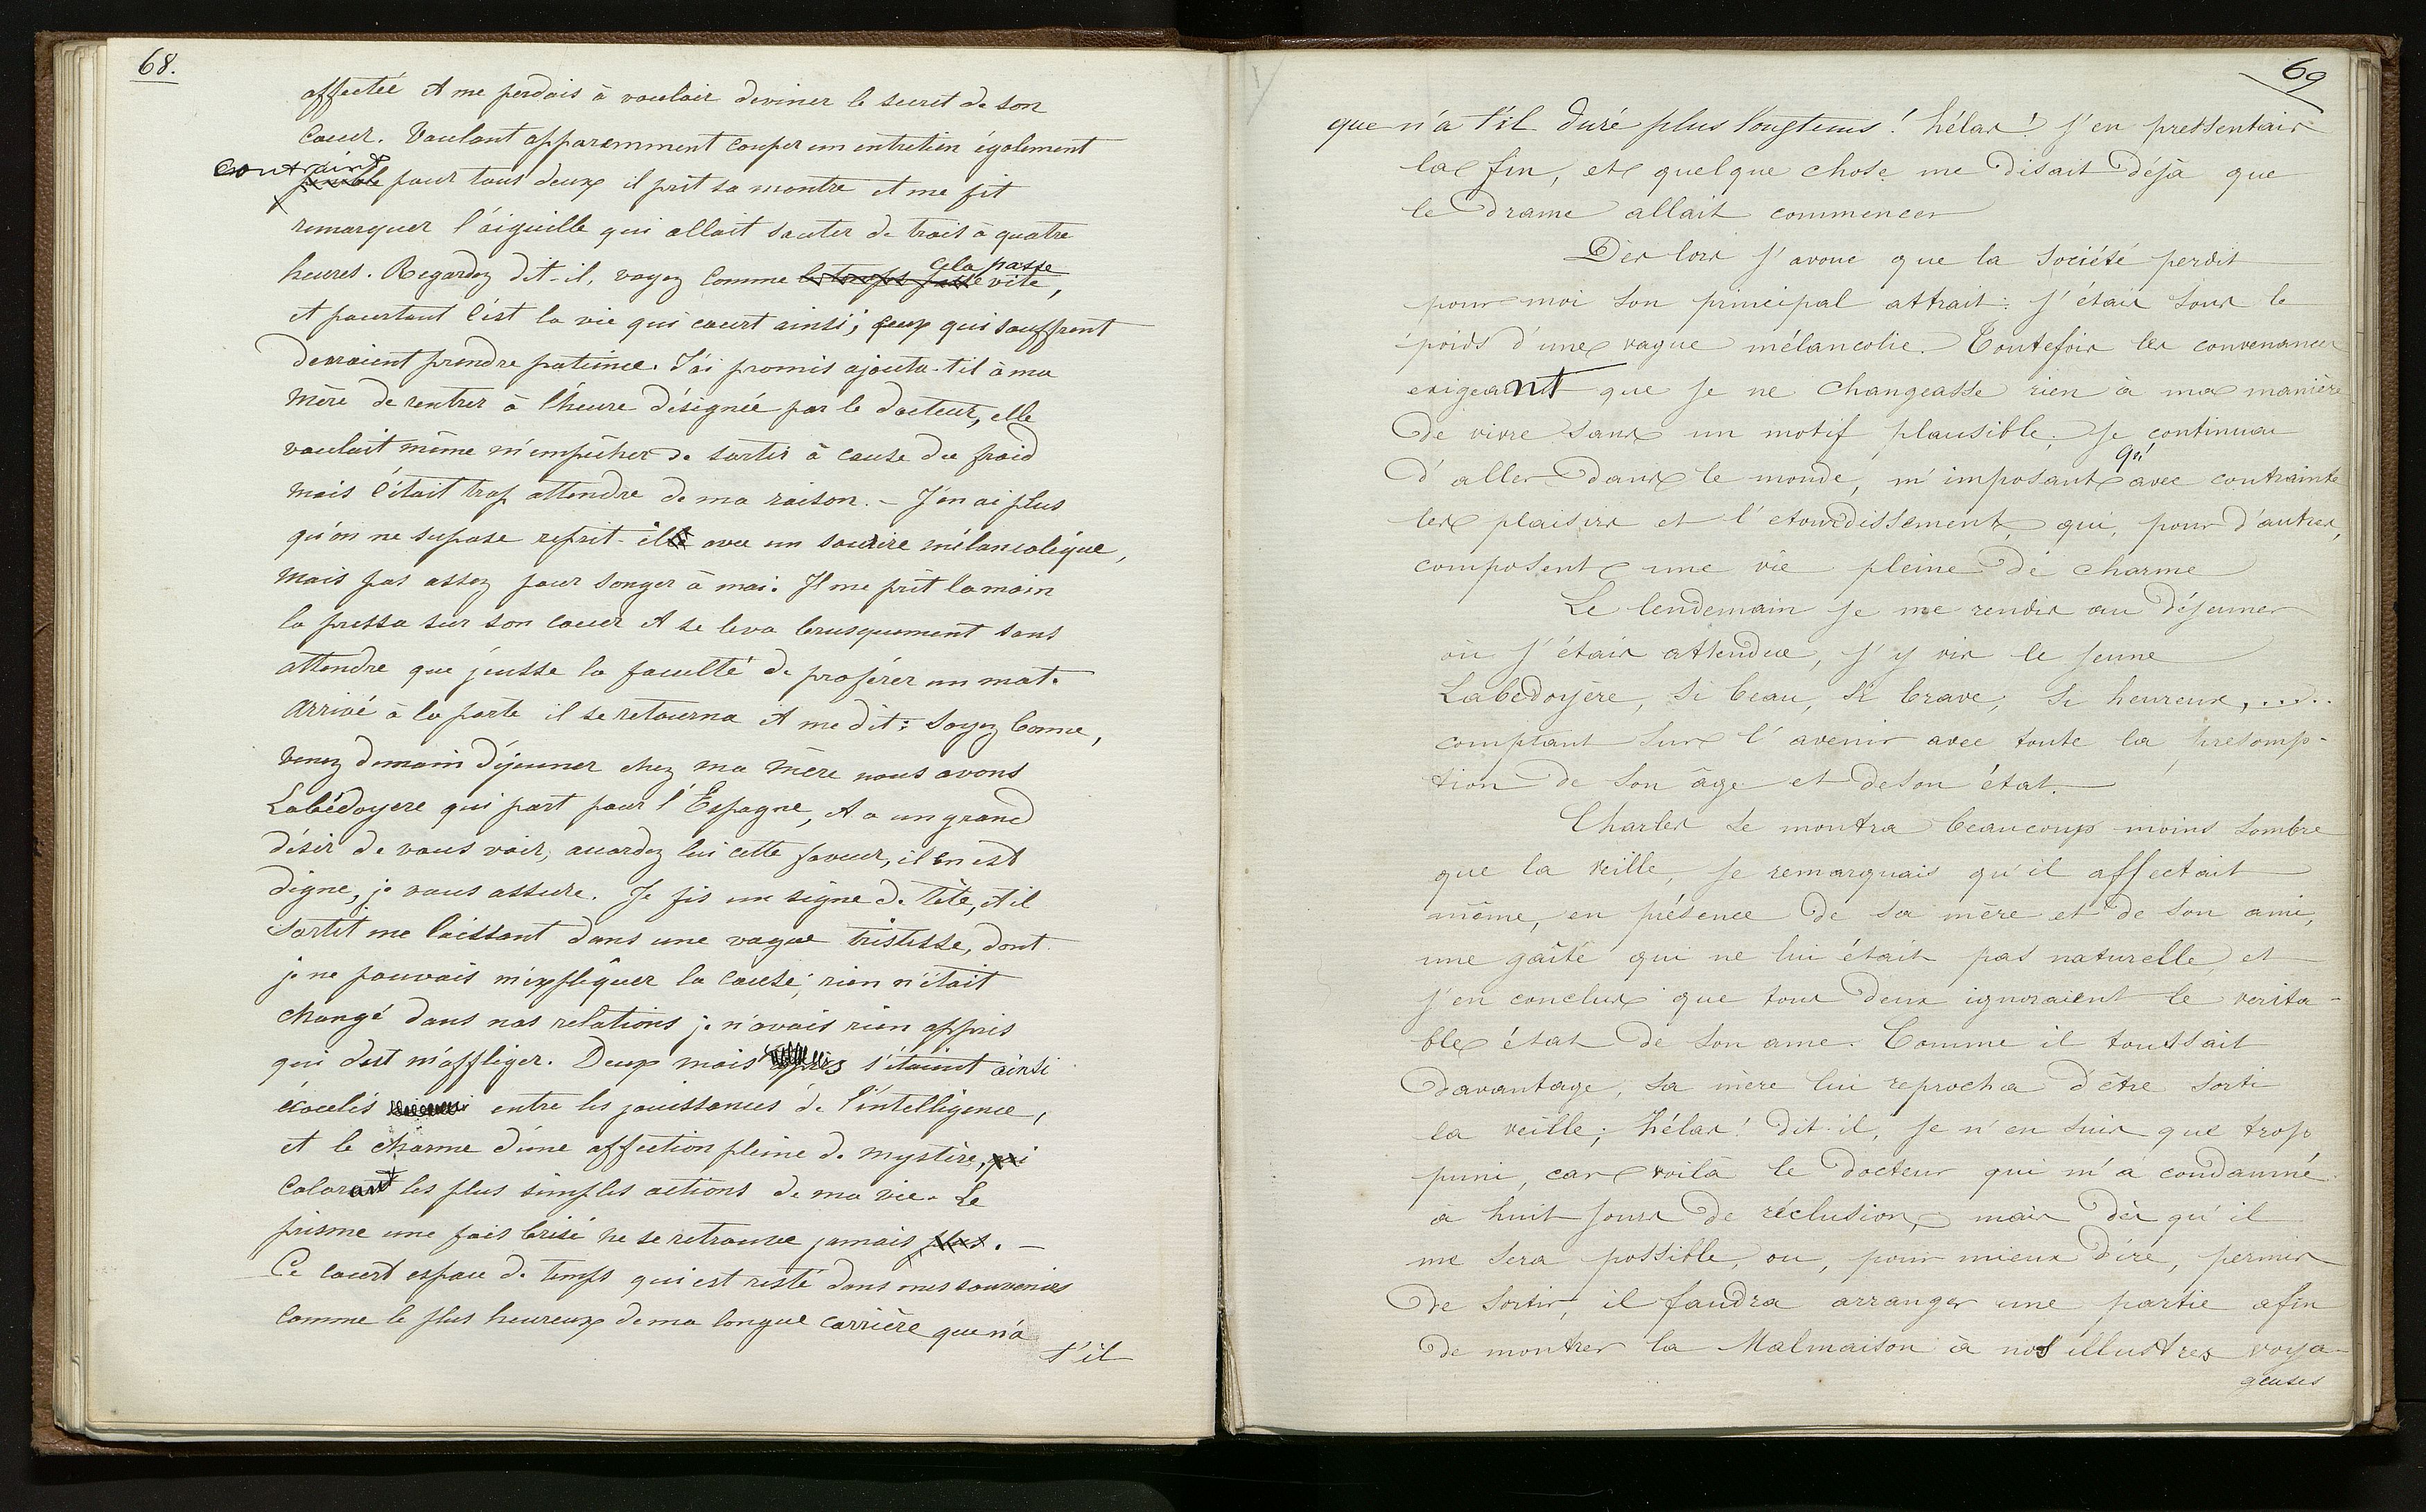 68.
affectée et me perdais à vouloir deviner le secret de son
cœur. Voulant apparemment couper un entretien également
contraint
pénible pour tous deux il prit sa montre et me fit
remarquer l'aiguille qui allait sauter de trois à quatre
cela passe
heures. Regardez dit-il, voyez comme le temps passe vite,
et pourtant c'est la vie qui court ainsi; ceux qui souffrent
devraient prendre patience. J'ai promis ajouta-t'il à ma
mère de rentrer à l'heure désignée par le docteur, elle
voulait même m'empêcher de sortir à cause du froid
mais c'était trop attendre de ma raison. - J'en ai plus
qu'on ne supose reprit-il avec un sourire mélancolique,
mais pas assez pour songer à moi. Il me prit la main
la pressa sur son cœur et se leva brusquement sans
attendre que j'eusse la faculté de proférer un mot.
Arrivé à la porte il se retourna et me dit: soyez bonne,
venez demain déjeuner chez ma mère nous avons
Labédoyere qui part pour l'Espagne, et a un grand
désir de vous voir, accordez lui cette faveur, il en est
digne, je vous assure. Je fis un signe de tête, et il
sortit me laissant dans une vague tristesse, dont
je ne pouvais m'expliquer la cause; rien n'était
changé dans nos relations je n'avais rien appris
qui dut m'affliger. Deux mois s'étaient ainsi
écoulés entre les jouissances de l'intelligence,
et le charme d'une affection pleine de mystère, qui
colorant les plus simples actions de ma vie. Le
prisme une fois brisé ne se retrouve jamais plus. -
Ce court espace de temps qui est resté dans mes souvenirs
comme le plus heureux de ma longue carrière que n'a
t'il
69
que n'a t'il duré plus longtems! hélas! j'en pressentais
la fin, et quelque chose me disait déjà que
le drame allait commencer
Dès lors j'avoue que la société perdit
pour moi son principal attrait: j'étais sous le
poids d'une vague mélancolie. Toutefois les convenances
exigeant que je ne changeasse rien à ma manière
de vivre sans un motif plausible, je continuai
qu'
d'aller dans le monde, m'imposant avec contrainte
les plaisirs et l'etourdissement, qui, pour d'autres,
composent une vie pleine de charme
Le lendemain je me rendis au déjeuner
où j'étais attendue, j'y vis le jeune
Labedoyère, si beau, si brave, si heureux,.....
comptant sur l'avenir avec toute la presomp-
tion de son âge et de son état.
Charles se montra beaucoup moins sombre
que la veille, je remarquais qu'il affectait
même, en présence de sa mère et de son ami,
une gaîté qui ne lui était pas naturelle, et
j'en conclus que tous deux ignoraient le verita-
ble état de son ame. Comme il toussait
davantage, sa mère lui reprocha d'être sorti
la veille; hélas! dit-il, je n'en suis que trop
puni, car voilà le docteur qui m'a condamné
à huit jours de réclusion, mais dès qu'il
me sera possible, ou, pour mieux dire, permis
de sortir, il faudra arranger une partie afin
de montrer la Malmaison à nos illustres voya-
geuses